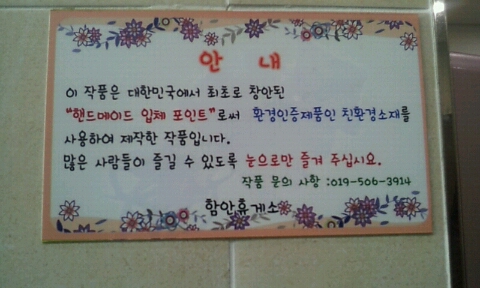 안 내
이 작품은 대한민국에서 최초로 창안된
“핸드메이드 입체 포인트”로써 환경인증제품인 친환경소재를
사용하여 제작한 작품입니다.
많은 사람들이 즐길 수 있도록 눈으로만 즐겨 주십시요.
작품 문의 사항 :019-506-3914
함안휴게소